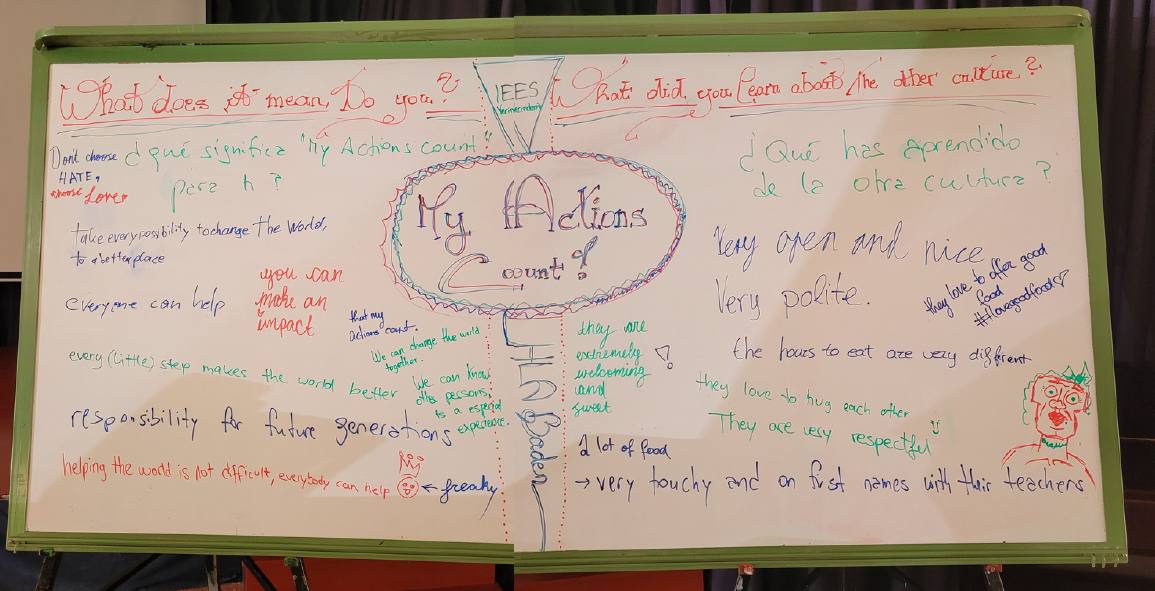 What does it mean, Do you?
Don't choose
HATE,
choose Love
¿qué significa "My Actions count"
para ti?
take every possibility to change the World,
to a better place
everyone can help
you can
make an
impact
that my
actions count.
We can change the world
together.
every (little) step makes the world better
We can know
other persons,
is a especial
experience.
responsibility for future generations
helping the world is not difficult, everybody can help
← freaky
IEES
My Actions
Count!
HLA Baden
What did you learn about the other culture?
¿Qué has aprendido
de la otra cultura?
Very open and nice
Very polite.
they love to offer good
food
#Ilovegoodfood
they are
extremely
welcoming
and
sweet
the hours to eat are very different
they love to hug each other
They are very respectful
A lot of food
→ very touchy and on first names with their teachers